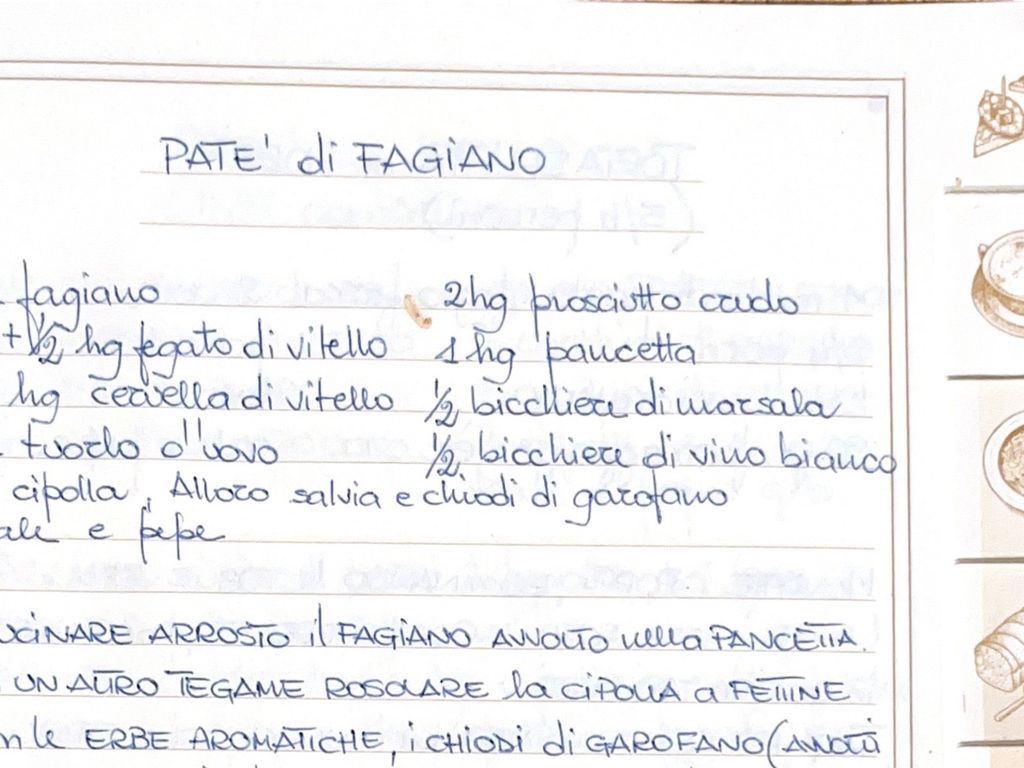 PATE' di FAGIANO
fagiano 2hg prosciutto crudo
+ 1/2 hg fegato di vitello 1 hg pancetta
hg cervella di vitello 1/2 bicchiere di marsala
tuorlo d'uovo 1/2 bicchiere di vino bianco
cipolla, Alloro salvia e chiodi di garofano
ale e pepe
UCINARE ARROSTO il FAGIANO AVVOLTO nella PANCETTA.
UN ALTRO TEGAME ROSOLARE la CIPOLLA a FETTINE
n le ERBE AROMATICHE, i CHIODI di GAROFANO (AVVOLTI